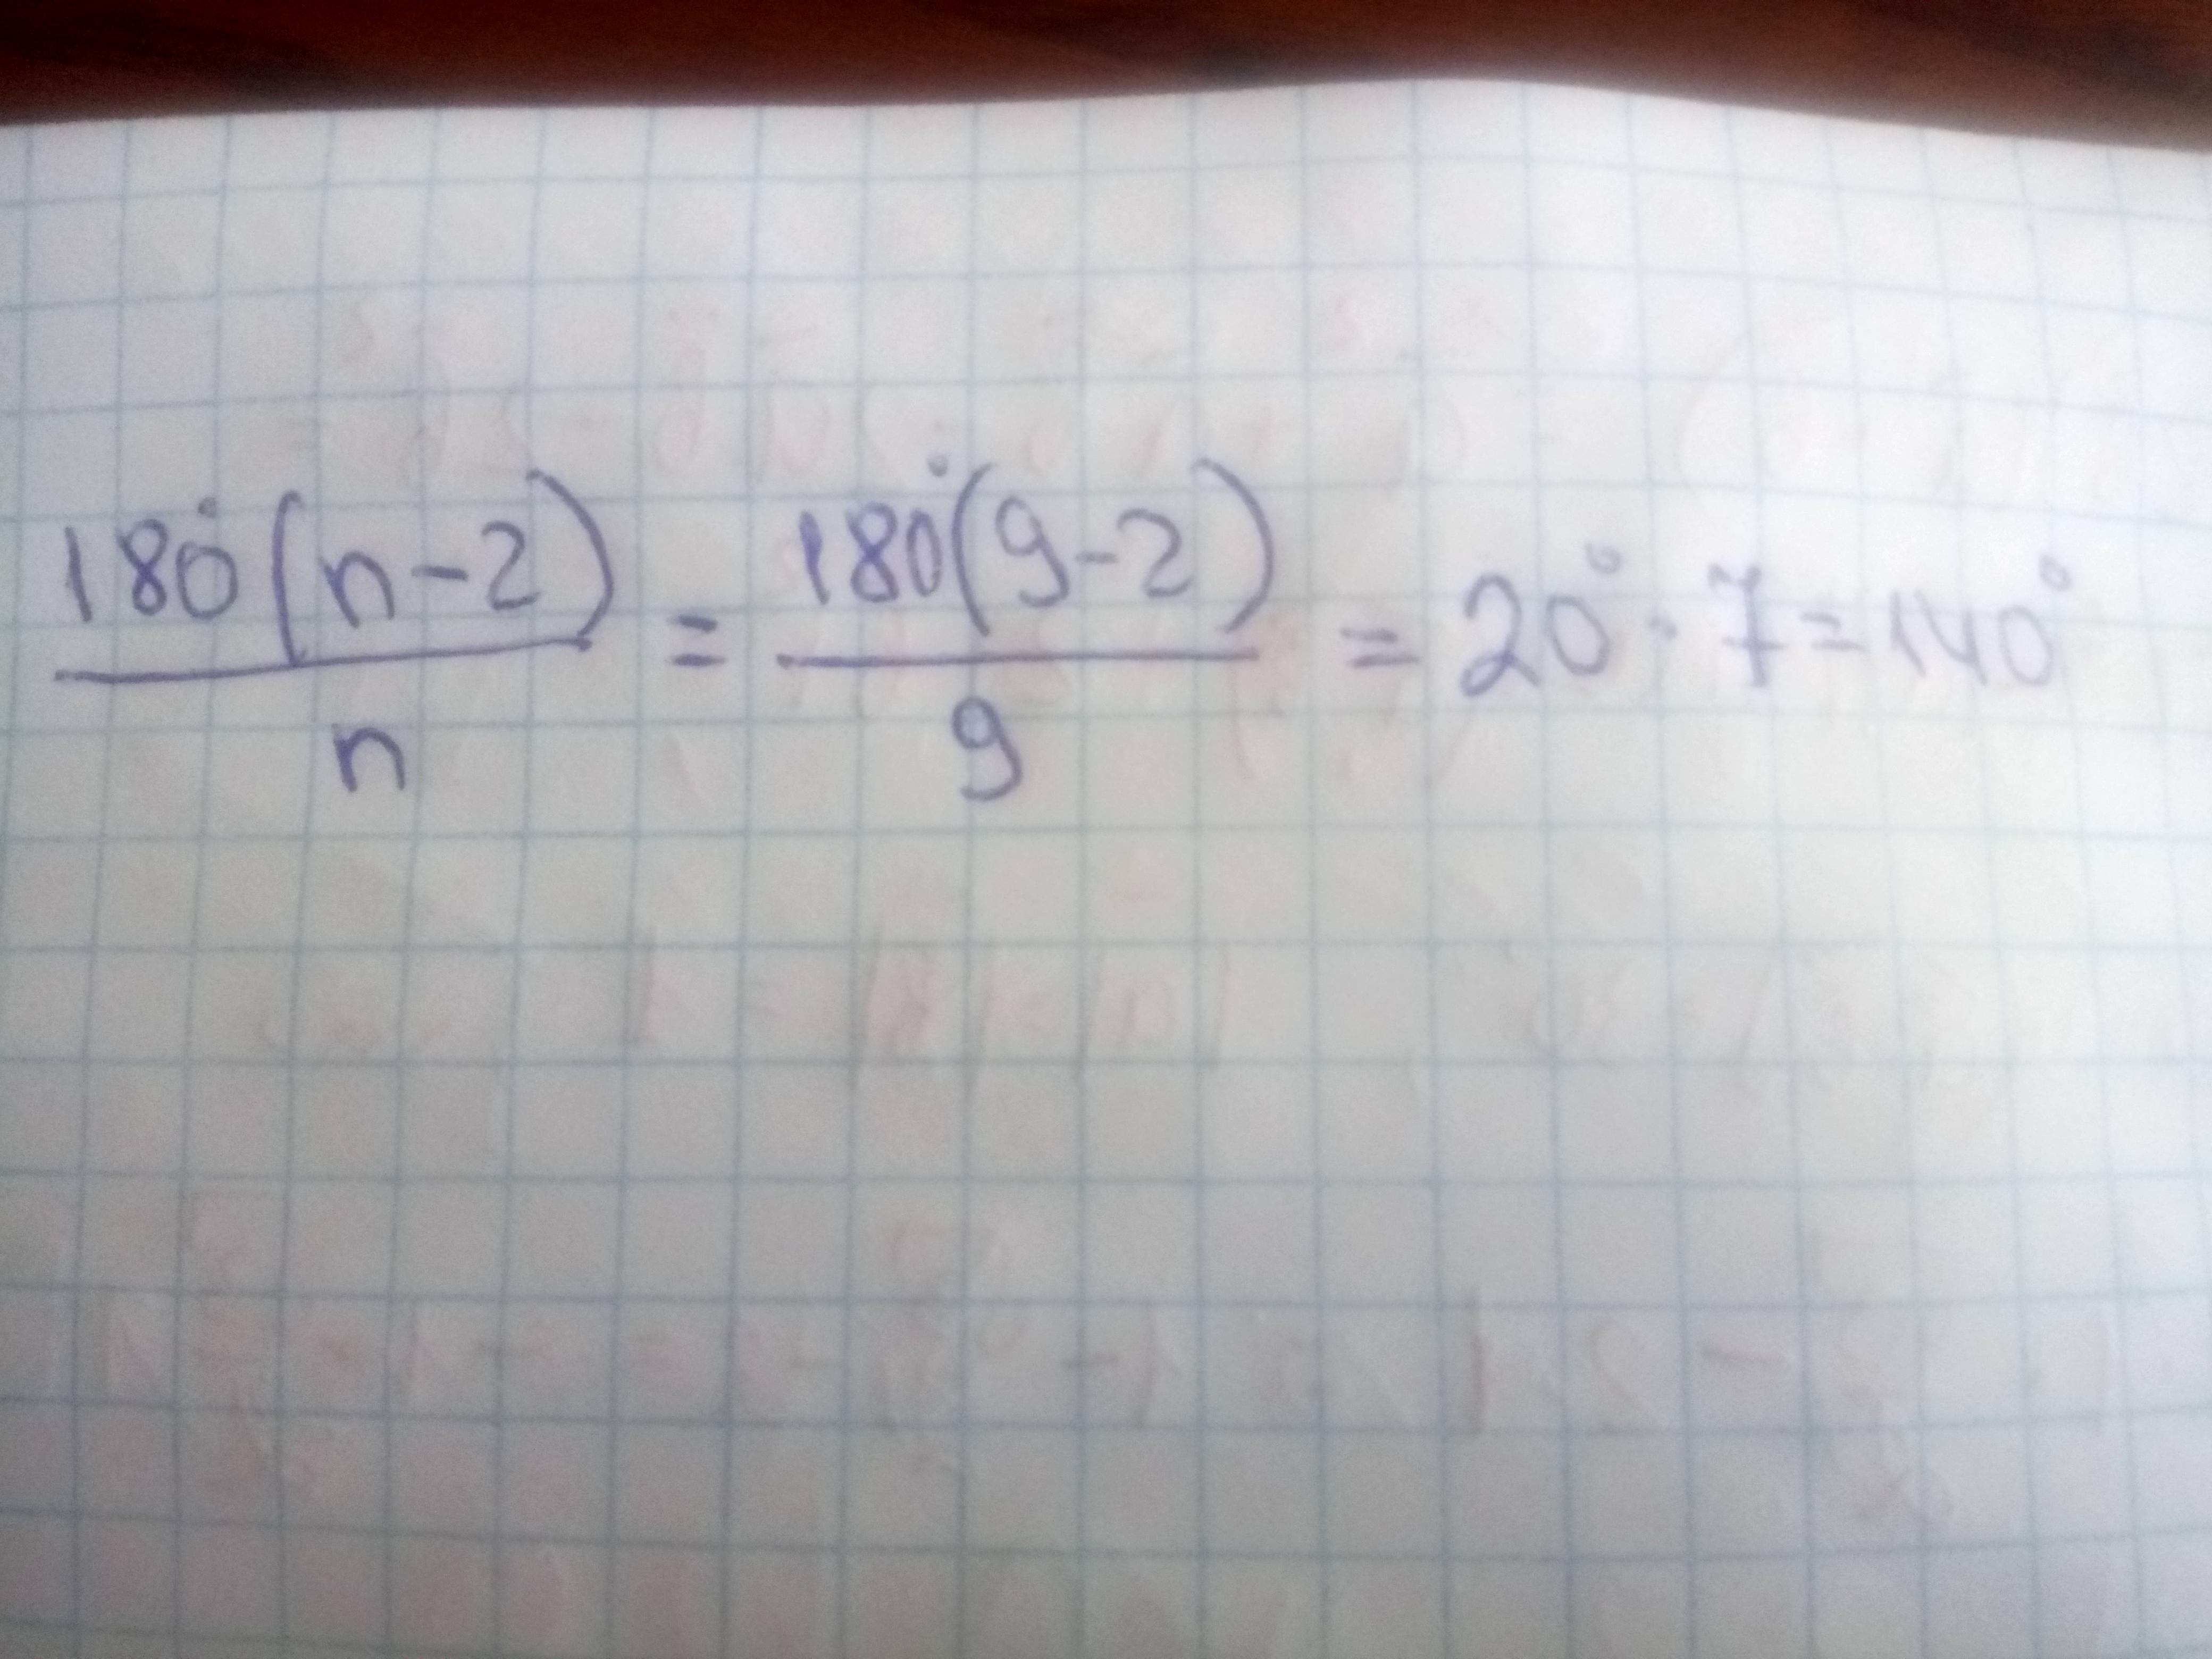 180°(n-2)/n = 180°(9-2)/9 = 20° · 7 = 140°